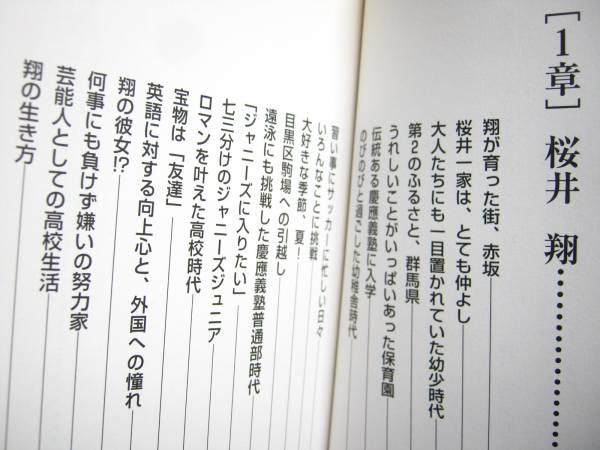 ［1章］桜井 翔…………………
翔が育った街、赤坂
桜井一家は、とても仲よし
大人たちにも一目置かれていた幼少時代
第2のふるさと、群馬県
うれしいことがいっぱいあった保育園
伝統ある慶應義塾に入学
のびのびと過ごした幼稚舎時代
習い事にサッカーに忙しい日々
いろんなことに挑戦
大好きな季節、夏！
目黒区駒場への引越し
遠泳にも挑戦した慶應義塾普通部時代
「ジャニーズに入りたい」
七三分けのジャニーズジュニア
ロマンを叶えた高校時代
宝物は「友達」
英語に対する向上心と、外国への憧れ
翔の彼女!?
何事にも負けず嫌いの努力家
芸能人としての高校生活
翔の生き方